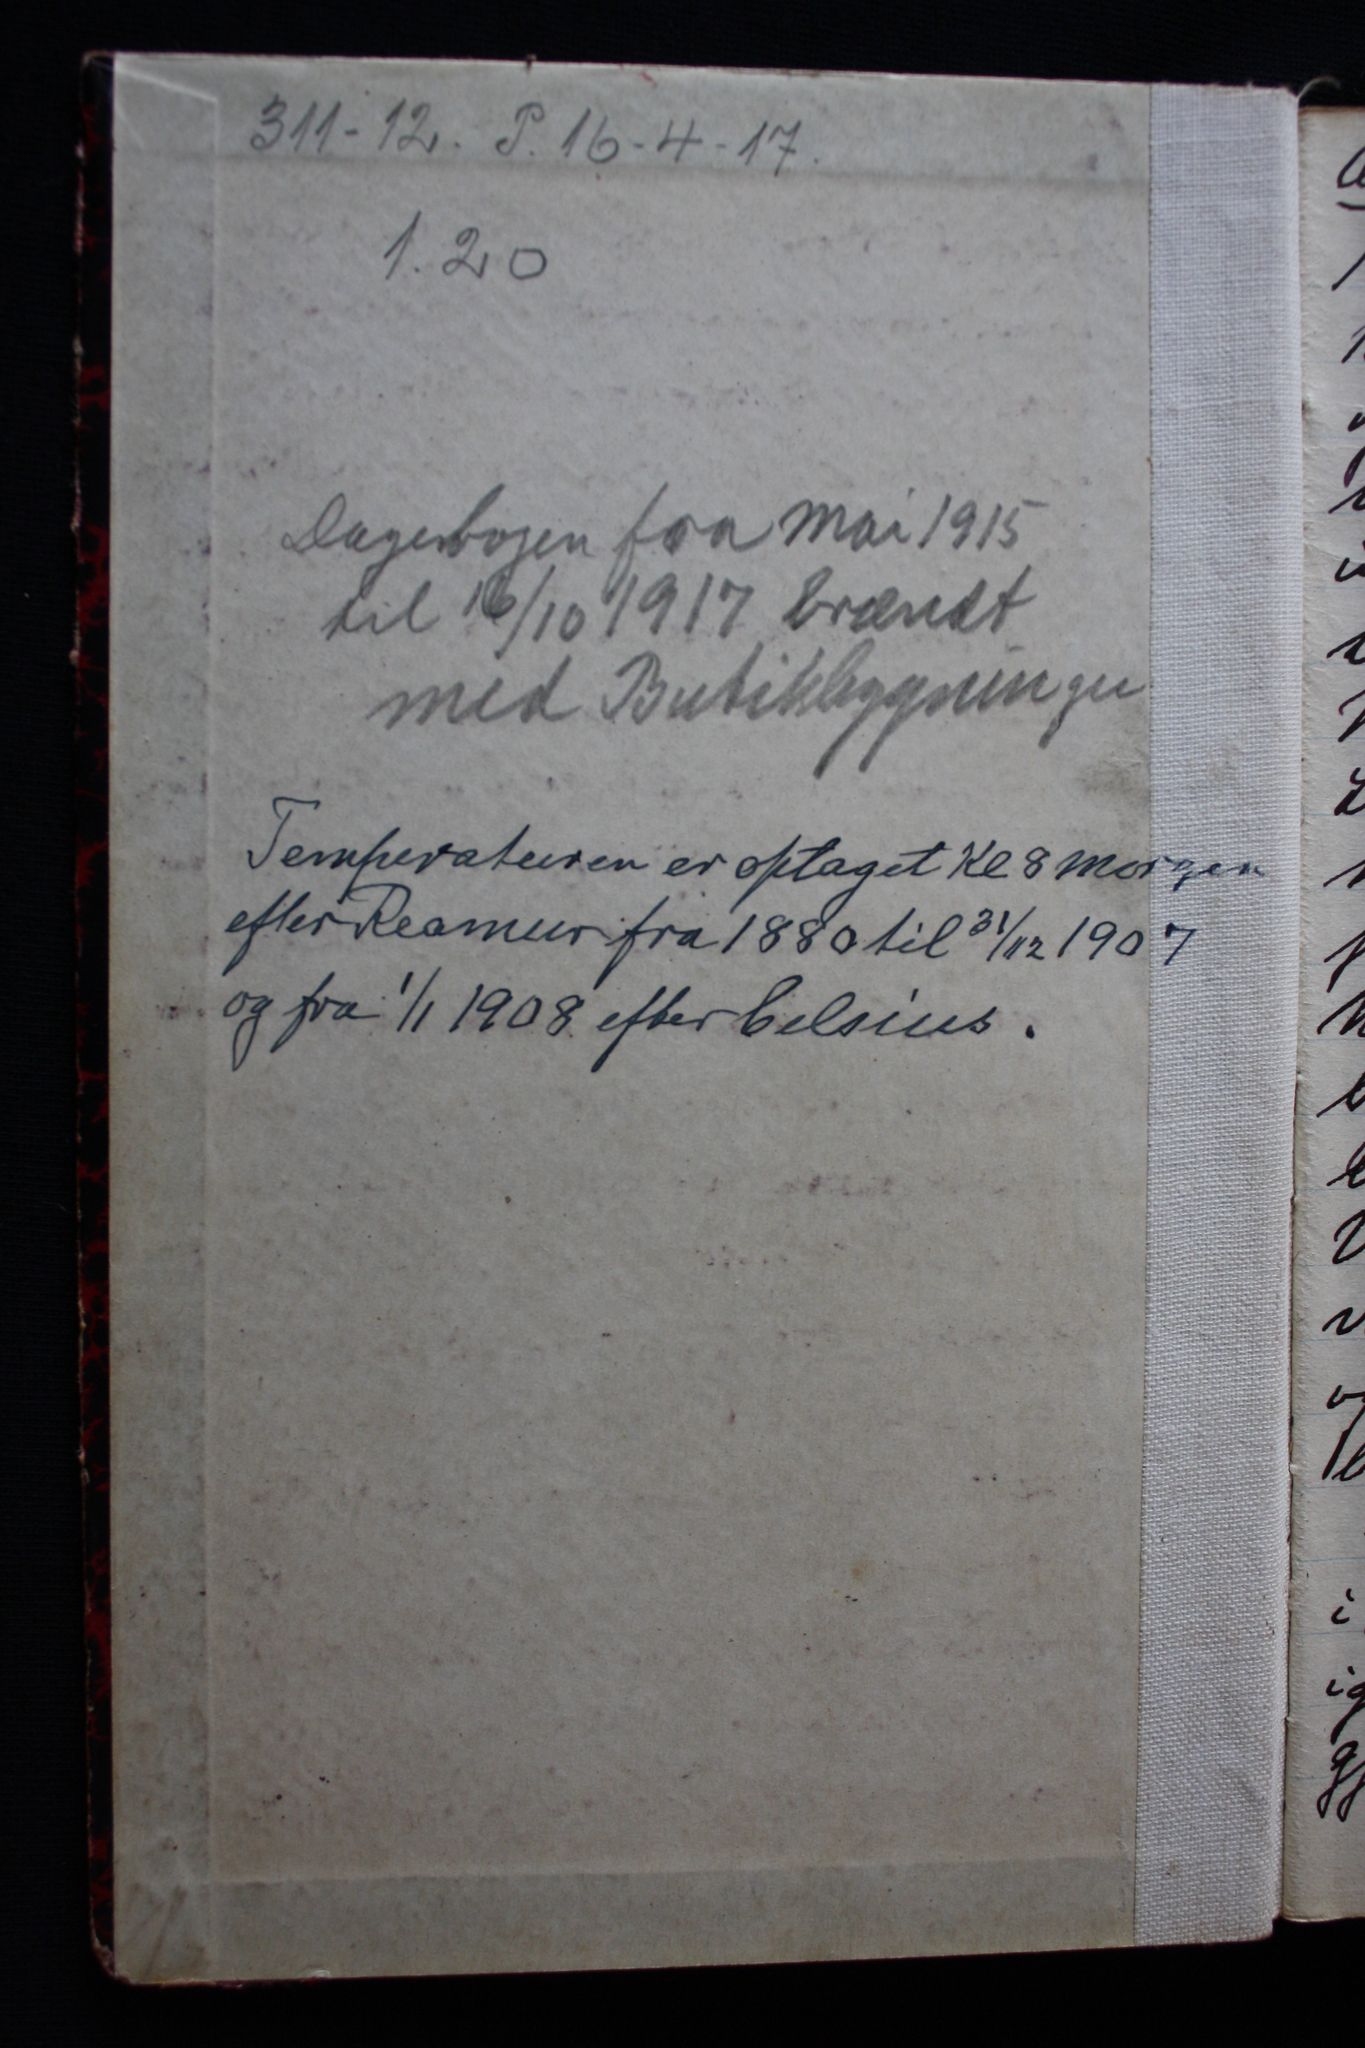 311-12. P. 16-4-17.
1.20
Dagenbogen fra Mai 1915
til 16/10 1917 brændt
med Butikbygningen
Temperaturen er optaget Kl 8 Morgen
efter Reamur fra 1880 til 31/12 1907
og fra 1/1 1908 efter Celsius.